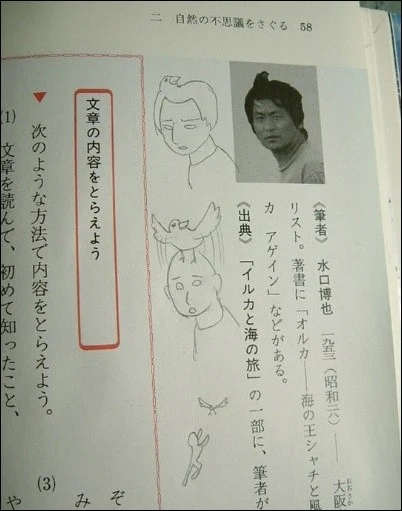 二 自然の不思議をさぐる 58
《筆者》 水口博也 一九五三(昭和二八)―― 大阪
おおさか
リスト。著書に「オルカ――海の王シャチと風
カ アゲイン」などがある。
《出典》 「イルカと海の旅」の一部に、筆者が
文章の内容をとらえよう
▼ 次のような方法で内容をとらえよう。
(1) 文章を読んで、初めて知ったこと、
(3)
ぞ
み
や